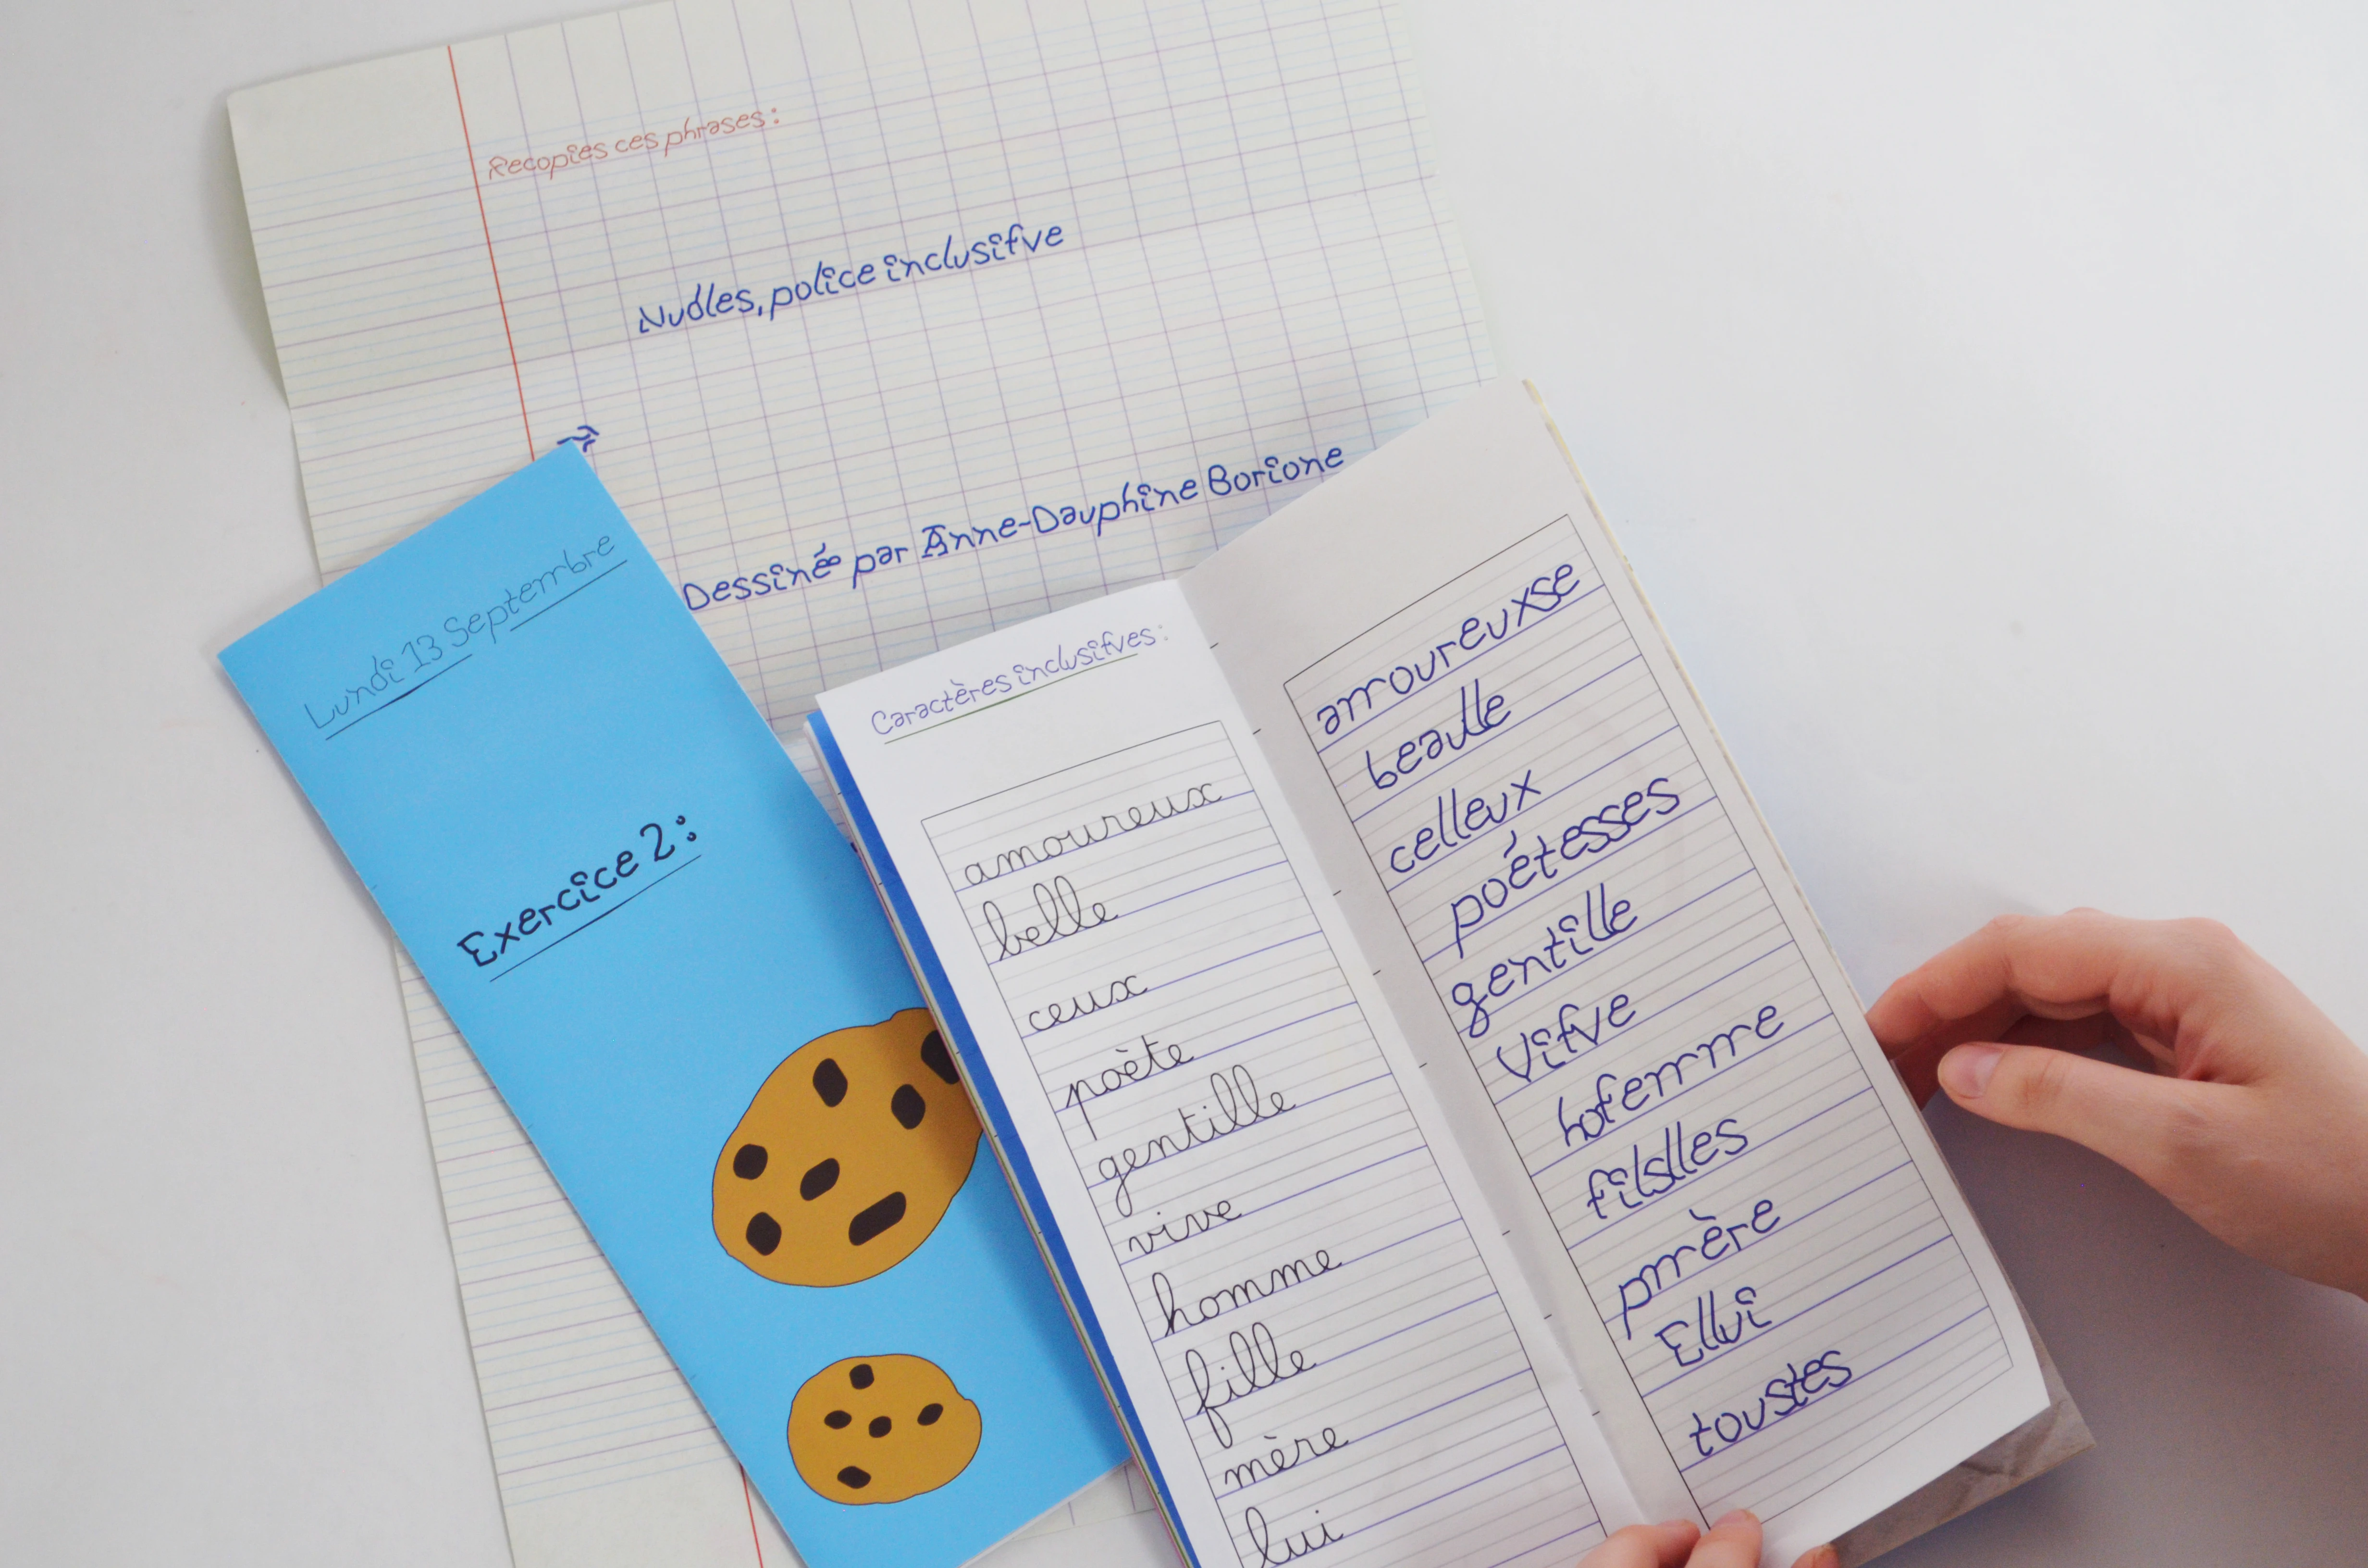 Recopies ces phrases :
Nudles, police inclusifve
Dessinée par Anne-Dauphine Borione
Lundi 13 Septembre
Exercice 2 :
Caractères inclusifves :
amoureux
belle
ceux
poète
gentille
vive
homme
fille
mère
lui
amoureuxse
beaulle
celleux
poétesses
gentille
Vifve
hofemme
filslles
pmère
Ellui
toustes